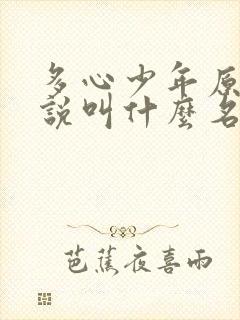 多心少年原
說叫什麼名
芭蕉夜喜雨